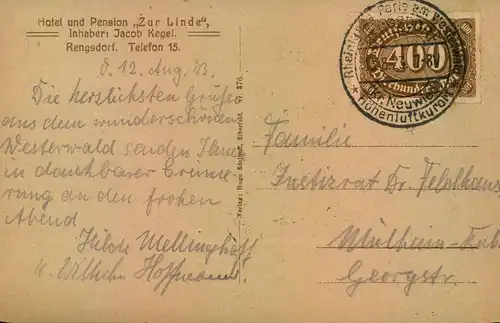 Hotel und Pension „Zur Linde“,
Inhaber: Jacob Kegel.
Rengsdorf. Telefon 15.
d. 12. Aug. 23.
Die herzlichsten Grüße
aus dem wunderschönen
Westerwald senden Ihnen
in dankbarer Erinne
rung an den frohen
Abend
Hilde Mellinghoff
u. Wilhelm Hoffmann.
Verlag: Hugo
Elberfeld
400
Neuwied
Höhenluftkurort
Familie
Justizrat Dr. Feldhaus
Mülheim-Ruhr
Georgstr.